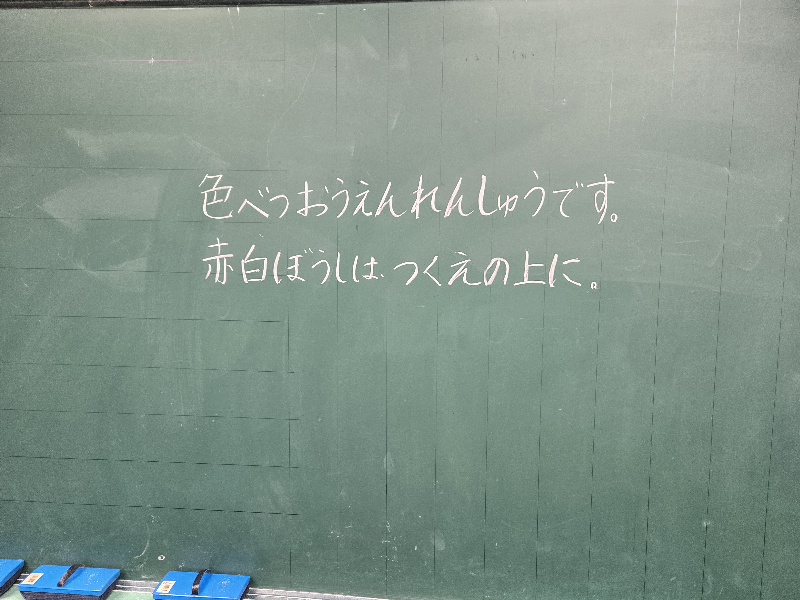 色べつおうえんれんしゅうです。
赤白ぼうしは、つくえの上に。